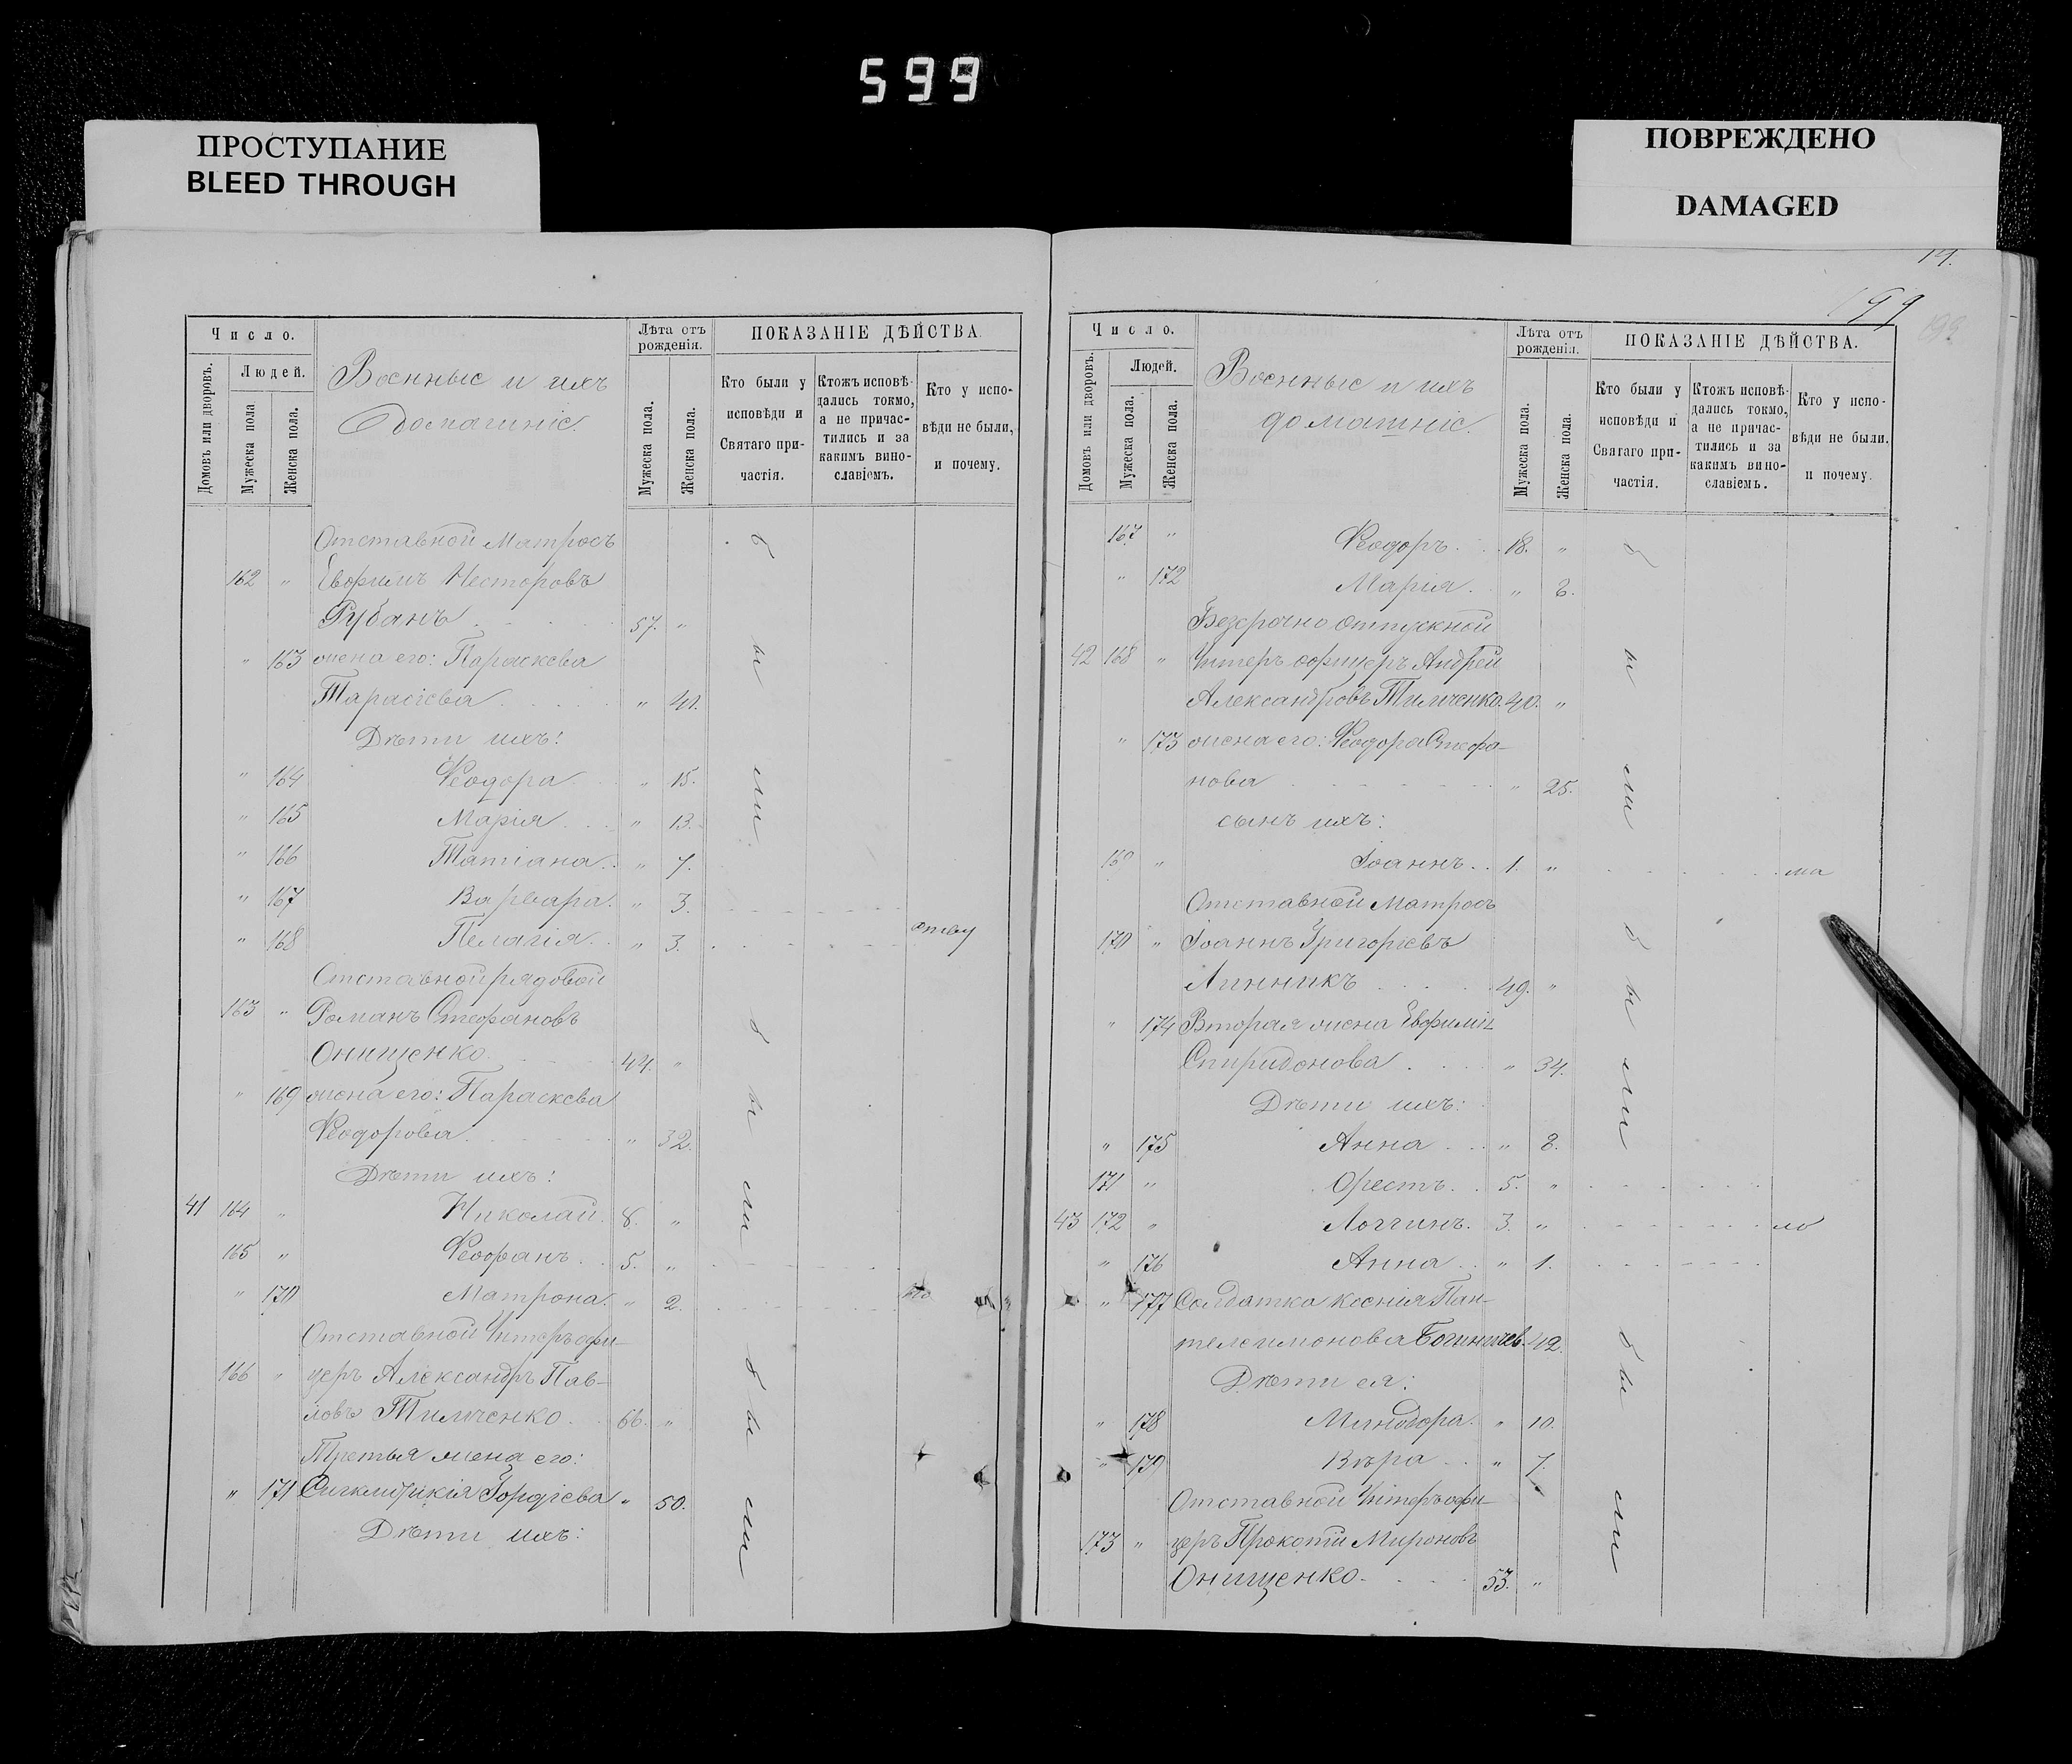 599
ПРОСТУПАНИЕ
BLEED THROUGH
ПОВРЕЖДЕНО
DAMAGED
Число.
Людей.
Домовъ или дворовъ.
Мужеска пола.
Женска пола.
Военные и ихъ
домашніе.
Лѣта отъ рожденія.
Мужеска пола.
Женска пола.
ПОКАЗАНІЕ ДѢЙСТВА.
Кто были у исповѣди и Святаго причастія.
Ктожъ исповѣдались токмо, а не причастились и за какимъ винославіемъ.
Кто у исповѣди не были, и почему.
Отставной Матросъ
162 " Евфимъ Несторовъ
Рубанъ 57. "
" 163 жена его: Параскева
Тарасіева " 41.
Дѣти ихъ:
" 164 Ѳеодора " 15.
" 165 Марія " 13.
" 166 Татіана " 7.
" 167 Варвара " 3.
" 168 Пелагія " 3.
Отставной рядовой
163 " Романъ Стефановъ
Онищенко 44. "
" 169 жена его: Параскева
Ѳеодорова " 32.
Дѣти ихъ:
41 164 " Николай 8. "
165 " Ѳеофанъ 5. "
" 170 Матрона " 2.
Отставной Унтеръ офи-
166 " церъ Александръ Пав-
ловъ Тимченко 66. "
Третья жена его:
" 171 Гордіева " 50.
Дѣти ихъ:
были
были
были
14.
199
199.
Число.
Людей.
Домовъ или дворовъ.
Мужеска пола.
Женска пола.
Военные и ихъ
домашніе.
Лѣта отъ рожденія.
Мужеска пола.
Женска пола.
ПОКАЗАНІЕ ДѢЙСТВА.
Кто были у исповѣди и Святаго причастія.
Ктожъ исповѣдались токмо, а не причастились и за какимъ винославіемъ.
Кто у исповѣди не были. и почему.
167 " Ѳеодоръ 18. "
" 172 Марія " 8.
Безсрочно отпускной
42 168 " Унтеръ офицеръ Андрей
Александровъ Тимченко 40. "
" 173 жена его: Ѳеодора Стефа-
нова " 25.
сынъ ихъ:
169 " Іоаннъ 1. "
Отставной Матросъ
170 " Іоаннъ Григоріевъ
Линникъ 49. "
" 174 Вторая жена Евфимія
Спиридонова " 34.
Дѣти ихъ:
" 175 Анна " 8.
171 " Орестъ 5. "
43 172 " Логгинъ 3. "
" 176 Анна " 1.
" 177 Солдатка Ксенія Пан-
телеимонова 42.
Дѣти ея:
" 178 Минодора " 10.
" 179 Вѣра " 7.
Отставной Унтеръ офи-
173 " церъ Прокопій Мироновъ
Онищенко 53. "
были
были
были